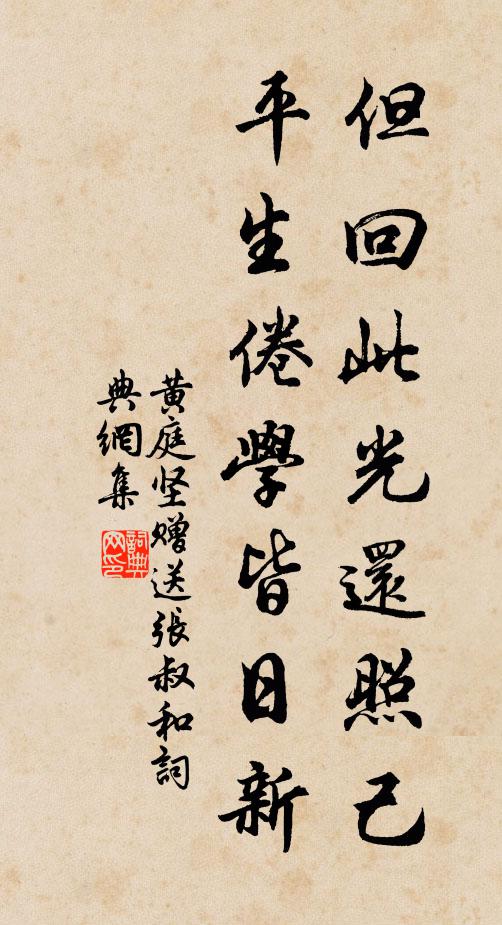 但回此光還照己
平生倦學皆日新
黄庭坚赠送張叔和詞
典網集
詞典
网印